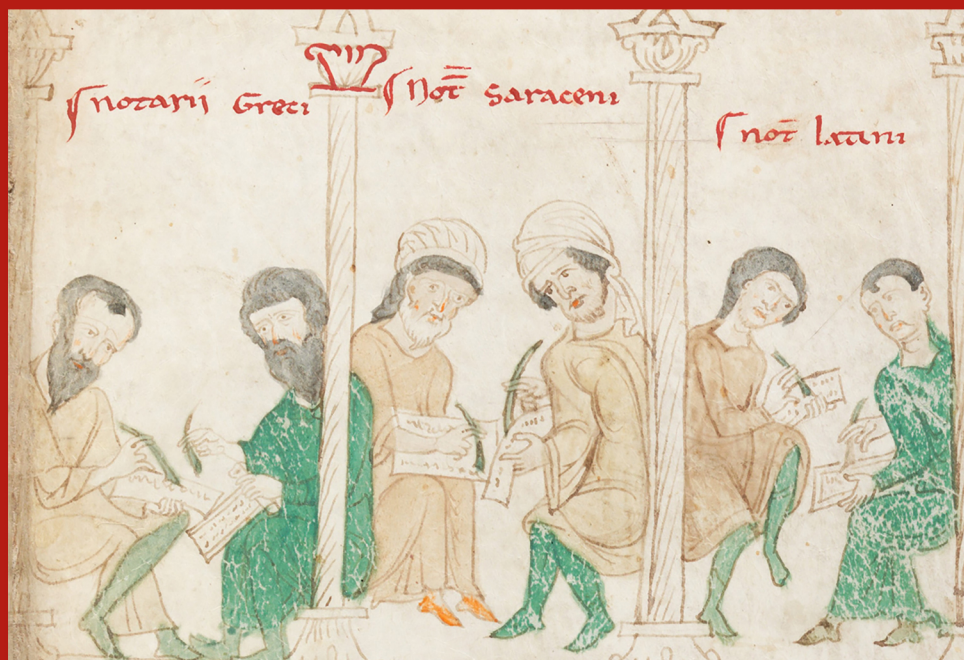 notarii Greci
Not̄ Saraceni
not̄ latini